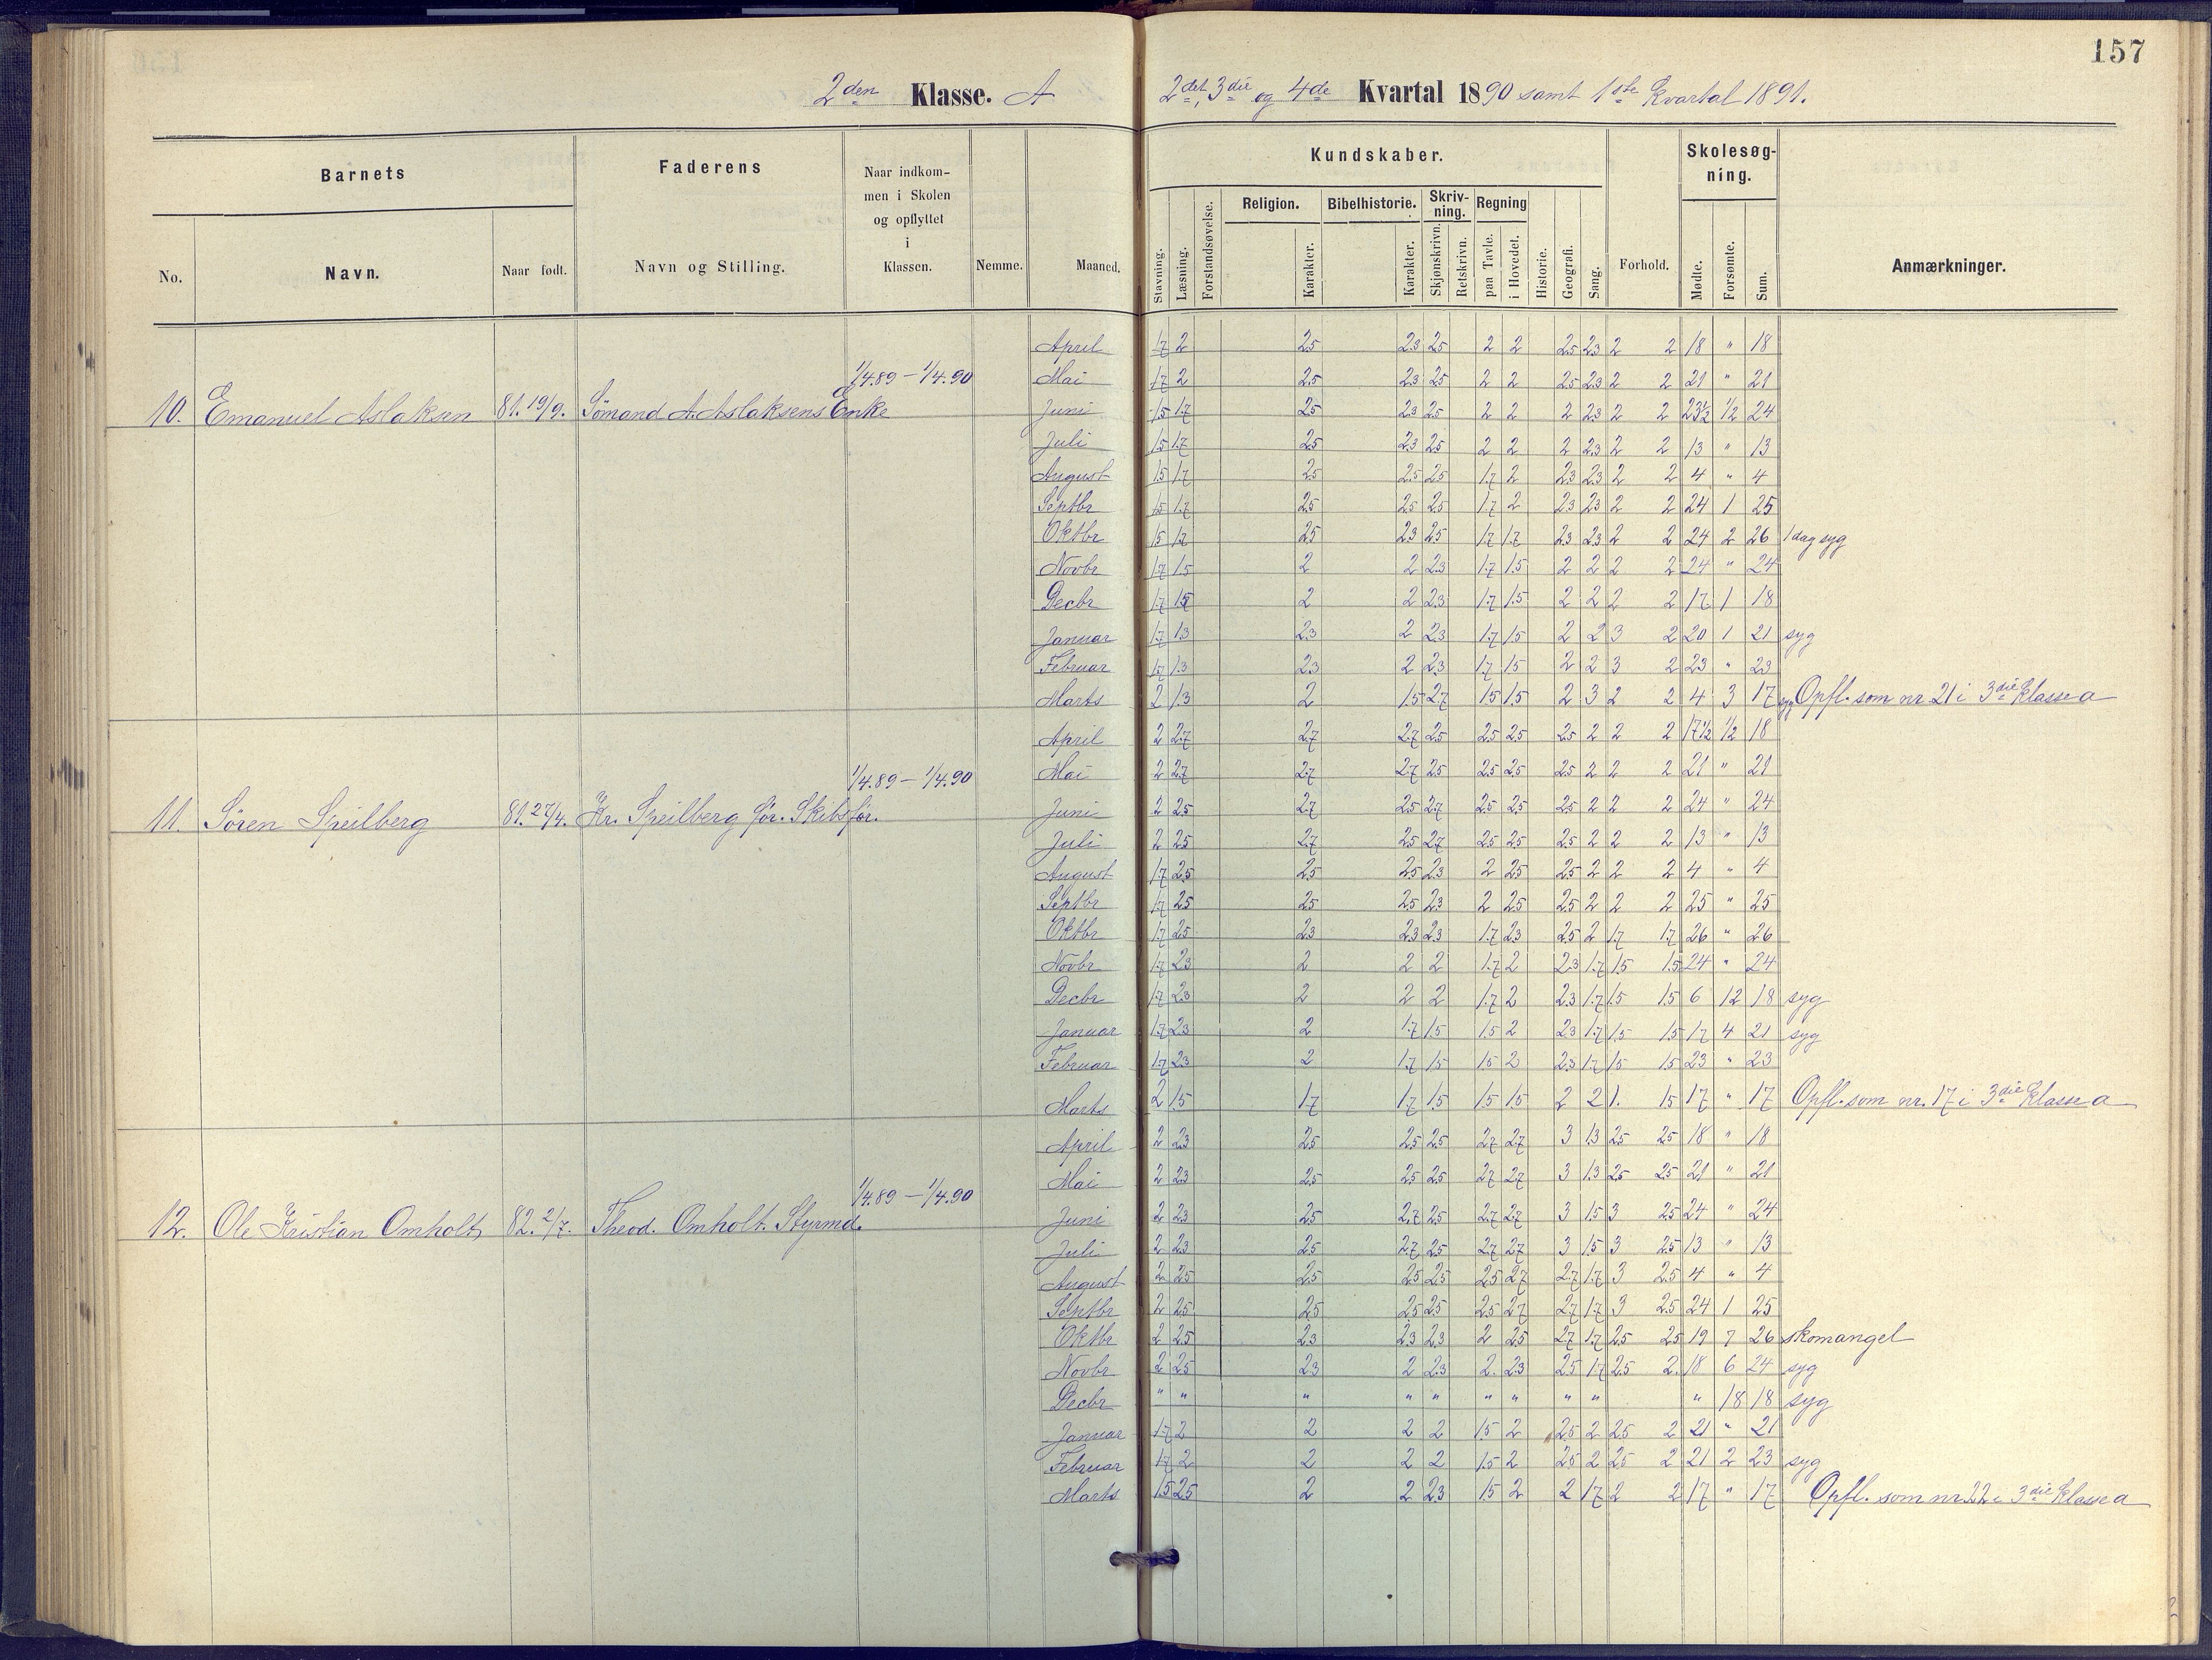 157
2den Klasse. A
2det, 3die og 4de Kvartal 1890 samt 1ste Kvartal 1891.
Barnets
Faderens
Naar indkommen i Skolen og opflyttet i Klassen.
Nemme.
Maaned.
No.
Navn.
Naar født.
Navn og Stilling.
Kundskaber.
Skolesøgning.
Stavning.
Læsning.
Forstandsøvelse.
Religion.
Karakter.
Bibelhistorie.
Karakter.
Skrivning.
Skjønskrivn.
Retskrivn.
Regning
paa Tavle.
i Hovedet.
Historie.
Geografi.
Sang.
Forhold.
Mødte.
Forsømte.
Sum.
Anmærkninger.
10. Emanuel Aslaksen 81.19/9. Sømand A. Aslaksens Enke 1/4.89 - 1/4.90
April 1.7 2 2.5 2.3 2.5 2 2 2.5 2.3 2 2 18 " 18
Mai 1.7 2 2.5 2.3 2.5 2 2 2.5 2.3 2 2 21 " 21
Juni 1.5 1.7 2.5 2.3 2.5 2 2 2 2.3 2 2 23½ ½ 24
Juli 1.5 1.7 2.5 2.3 2.5 2 2 2 2.3 2 2 13 " 13
August 1.5 1.7 2.5 2.5 2.5 1.7 2 2.3 2.3 2 2 4 " 4
Septbr 1.5 1.7 2.5 2.5 2.5 1.7 2 2.3 2.3 2 2 24 1 25
Oktbr 1.5 1.7 2.5 2.3 2.5 1.7 1.7 2.3 2.3 2 2 24 2 26 1 dag syg
Novbr 1.7 1.5 2 2 2.3 1.7 1.5 2 2 2 2 24 " 24
Decbr 1.7 1.5 2 2 2.3 1.7 1.5 2 2 2 2 17 1 18
Januar 1.7 1.3 2.3 2 2.3 1.7 1.5 2 2 3 2 20 1 21 syg
Februar 1.7 1.3 2.3 2 2.3 1.7 1.5 2 2 3 2 23 " 23
Marts 2 1.3 2 1.5 2.7 1.5 1.5 2 3 2 2 4 3 17 syg Opfl. som nr 21 i 3die Klasse a
11. Søren Speilberg 81.27/4. Kr. Speilberg før. Skibsfør. 1/4.89 - 1/4.90
April 2 2.7 2.7 2.7 2.5 2.5 2.5 2.5 2 2 2 17½ ½ 18
Mai 2 2.7 2.7 2.7 2.5 2.5 2.5 2.5 2 2 2 21 " 21
Juni 2 2.5 2.7 2.5 2.7 2.5 2.5 2.5 2 2 2 24 " 24
Juli 2 2.5 2.7 2.5 2.7 2.5 2.5 2.5 2 2 2 13 " 13
August 1.7 2.5 2.5 2.5 2.3 2 2.5 2.5 2 2 2 4 " 4
Septbr 1.7 2.5 2.5 2.5 2.3 2 2.5 2.5 2 2 2 25 " 25
Oktbr 1.7 2.5 2.3 2.3 2.3 1.7 2.3 2.5 2 1.7 1.7 26 " 26
Novbr 1.7 2.3 2 2 2 1.7 2 2.3 1.7 1.5 1.5 24 " 24
Decbr 1.7 2.3 2 2 2 1.7 2 2.3 1.7 1.5 1.5 6 12 18 syg
Januar 1.7 2.3 2 1.7 1.5 1.5 2 2.3 1.7 1.5 1.5 17 4 21 syg
Februar 1.7 2.3 2 1.7 1.5 1.5 2 2.3 1.7 1.5 1.5 23 " 23
Marts 2 1.5 1.7 1.7 1.5 1.5 1.5 2 2 1. 1.5 17 " 17 Opfl. som nr. 17 i 3die Klasse a
12. Ole Kristian Omholt 82.2/7. Theod. Omholt. Styrmd. 1/4.89 - 1/4.90
April 2 2.3 2.5 2.5 2.5 2.7 2.7 3 1.3 2.5 2.5 18 " 18
Mai 2 2.3 2.5 2.5 2.5 2.7 2.7 3 1.3 2.5 2.5 21 " 21
Juni 2 2.3 2.5 2.7 2.5 2.7 2.7 3 1.5 3 2.5 24 " 24
Juli 2 2.3 2.5 2.7 2.5 2.7 2.7 3 1.5 3 2.5 13 " 13
August 2 2.5 2.5 2.5 2.5 2.5 2.7 2.7 1.7 3 2.5 4 " 4
Septbr 2 2.5 2.5 2.5 2.5 2.5 2.7 2.7 1.7 3 2.5 24 1 25
Oktbr 2 2.5 2.3 2.3 2.3 2 2.5 2.7 1.7 2.5 2.5 19 7 26 skomangel
Novbr 2 2.5 2.3 2 2.3 2. 2.3 2.5 1.7 2.5 2. 18 6 24 syg
Decbr " " " " " " " " " " 18 18 syg
Januar 1.7 2 2 2 2 1.5 2 2.5 2 2.5 2 21 " 21
Februar 1.7 2 2 2 2 1.5 2 2.5 2 2.5 2 21 2 23 syg
Marts 1.5 2.5 2 2 2.3 1.5 2 2 1.7 2 2 17 " 17 Opfl. som nr 22 i 3die Klasse a